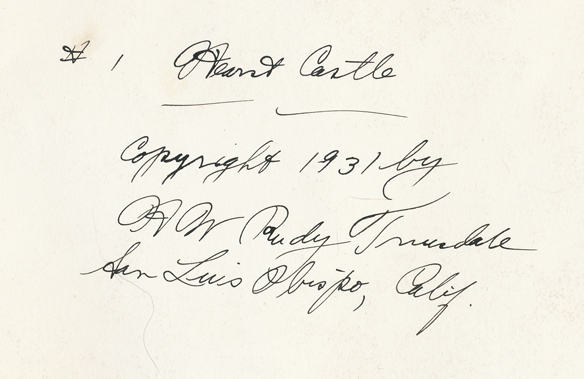 # 1 Hearst Castle
Copyright 1931 by
H W Rudy Truesdale
San Luis Obispo, Calif.